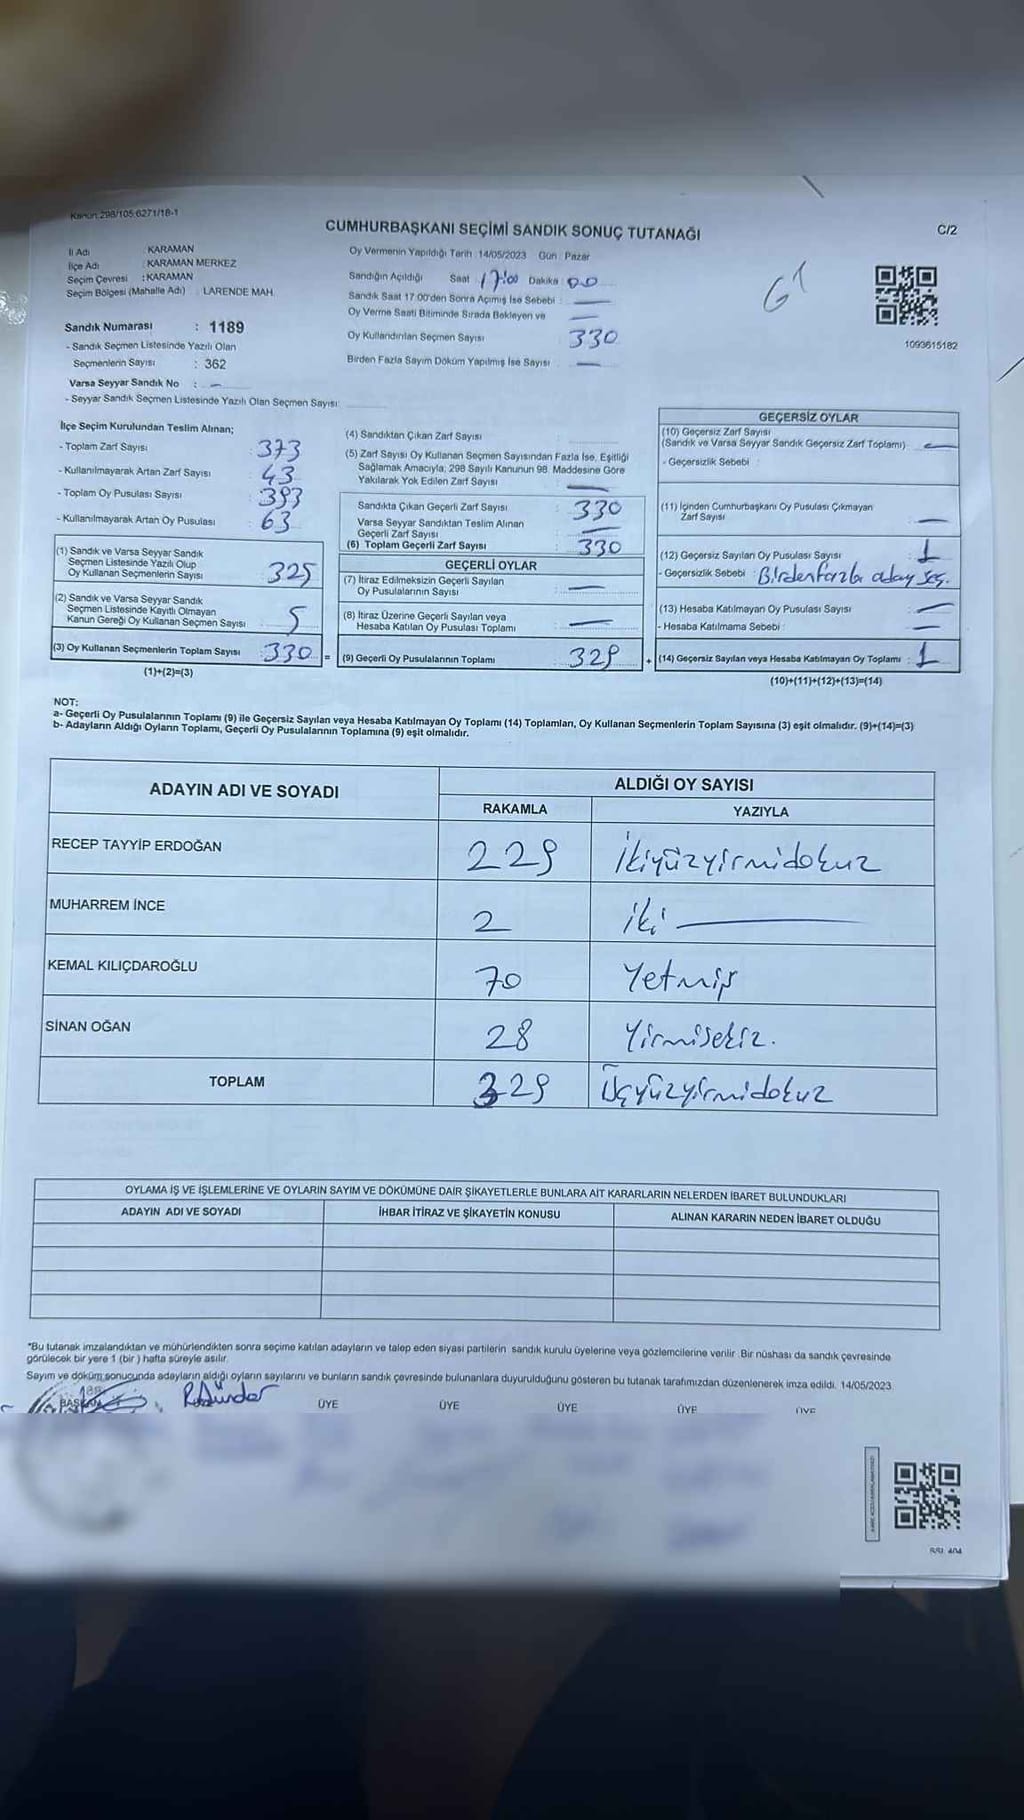 Kanun:298/105;6271/18-1
CUMHURBAŞKANI SEÇİMİ SANDIK SONUÇ TUTANAĞI
C/2
İl Adı : KARAMAN
İlçe Adı : KARAMAN MERKEZ
Seçim Çevresi : KARAMAN
Seçim Bölgesi (Mahalle Adı) : LARENDE MAH.
Sandık Numarası : 1189
- Sandık Seçmen Listesinde Yazılı Olan
Seçmenlerin Sayısı : 362
Varsa Seyyar Sandık No : -
- Seyyar Sandık Seçmen Listesinde Yazılı Olan Seçmen Sayısı:
Oy Vermenin Yapıldığı Tarih : 14/05/2023 Gün : Pazar
Sandığın Açıldığı Saat 17:00 Dakika : 00
Sandık Saat 17:00'den Sonra Açımış İse Sebebi : —
Oy Verme Saati Bitiminde Sırada Bekleyen ve —
Oy Kullandırılan Seçmen Sayısı 330
Birden Fazla Sayım Döküm Yapılmış İse Sayısı —
61
1093615182
İlçe Seçim Kurulundan Teslim Alınan;
- Toplam Zarf Sayısı 373
- Kullanılmayarak Artan Zarf Sayısı 43
- Toplam Oy Pusulası Sayısı 393
- Kullanılmayarak Artan Oy Pusulası 63
(1) Sandık ve Varsa Seyyar Sandık
Seçmen Listesinde Yazılı Olup
Oy Kullanan Seçmenlerin Sayısı 325
(2) Sandık ve Varsa Seyyar Sandık
Seçmen Listesinde Kayıtlı Olmayan
Kanun Gereği Oy Kullanan Seçmen Sayısı : 5
(3) Oy Kullanan Seçmenlerin Toplam Sayısı : 330 =
(1)+(2)=(3)
(4) Sandıktan Çıkan Zarf Sayısı
(5) Zarf Sayısı Oy Kullanan Seçmen Sayısından Fazla İse, Eşitliği
Sağlamak Amacıyla; 298 Sayılı Kanunun 98. Maddesine Göre
Yakılarak Yok Edilen Zarf Sayısı —
Sandıkta Çıkan Geçerli Zarf Sayısı 330
Varsa Seyyar Sandıktan Teslim Alınan
Geçerli Zarf Sayısı —
(6) Toplam Geçerli Zarf Sayısı : 330
GEÇERLİ OYLAR
(7) İtiraz Edilmeksizin Geçerli Sayılan
Oy Pusulalarının Sayısı —
(8) İtiraz Üzerine Geçerli Sayılan veya
Hesaba Katılan Oy Pusulası Toplamı —
(9) Geçerli Oy Pusulalarının Toplamı : 329 +
GEÇERSİZ OYLAR
(10) Geçersiz Zarf Sayısı
(Sandık ve Varsa Seyyar Sandık Geçersiz Zarf Toplamı) —
- Geçersizlik Sebebi :
(11) İçinden Cumhurbaşkanı Oy Pusulası Çıkmayan
Zarf Sayısı —
(12) Geçersiz Sayılan Oy Pusulası Sayısı 1
- Geçersizlik Sebebi : Birdenfazla aday seç.
(13) Hesaba Katılmayan Oy Pusulası Sayısı —
- Hesaba Katılmama Sebebi : —
(14) Geçersiz Sayılan veya Hesaba Katılmayan Oy Toplamı : 1
(10)+(11)+(12)+(13)=(14)
NOT:
a- Geçerli Oy Pusulalarının Toplamı (9) ile Geçersiz Sayılan veya Hesaba Katılmayan Oy Toplamı (14) Toplamları, Oy Kullanan Seçmenlerin Toplam Sayısına (3) eşit olmalıdır. (9)+(14)=(3)
b- Adayların Aldığı Oyların Toplamı, Geçerli Oy Pusulalarının Toplamına (9) eşit olmalıdır.
ADAYIN ADI VE SOYADI ALDIĞI OY SAYISI
RAKAMLA YAZIYLA
RECEP TAYYİP ERDOĞAN 229 İkiyüzyirmidokuz
MUHARREM İNCE 2 iki
KEMAL KILIÇDAROĞLU 70 Yetmiş
SİNAN OĞAN 28 Yirmisekiz.
TOPLAM 329 Üçyüzyirmidokuz
OYLAMA İŞ VE İŞLEMLERİNE VE OYLARIN SAYIM VE DÖKÜMÜNE DAİR ŞİKAYETLERLE BUNLARA AİT KARARLARIN NELERDEN İBARET BULUNDUKLARI
ADAYIN ADI VE SOYADI İHBAR İTİRAZ VE ŞİKAYETİN KONUSU ALINAN KARARIN NEDEN İBARET OLDUĞU
*Bu tutanak imzalandıktan ve mühürlendikten sonra seçime katılan adayların ve talep eden siyasi partilerin sandık kurulu üyelerine veya gözlemcilerine verilir. Bir nüshası da sandık çevresinde
görülecek bir yere 1 (bir ) hafta süreyle asılır.
Sayım ve döküm sonucunda adayların aldığı oyların sayılarını ve bunların sandık çevresinde bulunanlara duyurulduğunu gösteren bu tutanak tarafımızdan düzenlenerek imza edildi. 14/05/2023
ÜYE ÜYE ÜYE ÜYE ÜYE